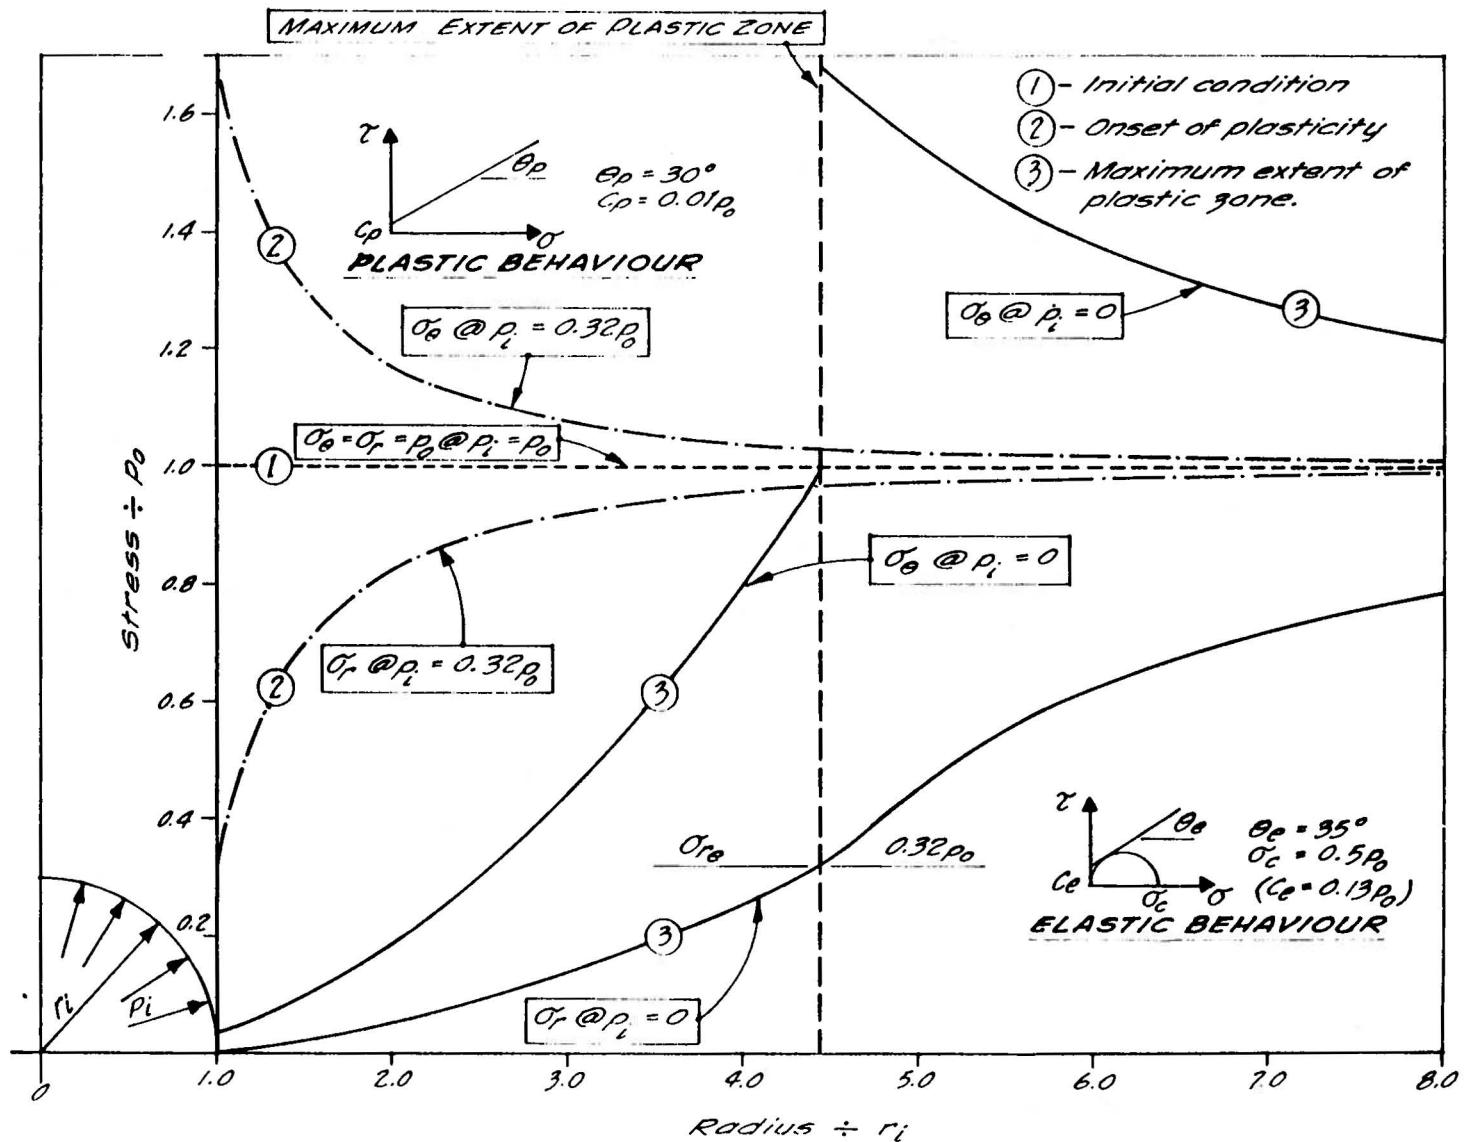 MAXIMUM EXTENT OF PLASTIC ZONE
① - Initial condition
② - Onset of plasticity
③ - Maximum extent of
plastic zone.
1.6
1.4
1.2
1.0
0.8
0.6
0.4
0.2
Stress ÷ p₀
τ
θp
θp = 30°
Cp = 0.01p₀
Cp
σ
PLASTIC BEHAVIOUR
②
σθ @ pᵢ = 0.32p₀
σθ @ pᵢ = 0
③
σθ = σr = p₀ @ pᵢ = p₀
①
σθ @ pᵢ = 0
σr @ pᵢ = 0.32p₀
②
③
σre
0.32p₀
τ
θe
θe = 35°
σc = 0.5p₀
(Ce = 0.13p₀)
Ce
σc
σ
ELASTIC BEHAVIOUR
③
σr @ pᵢ = 0
rᵢ
pᵢ
0 1.0 2.0 3.0 4.0 5.0 6.0 7.0 8.0
Radius ÷ rᵢ